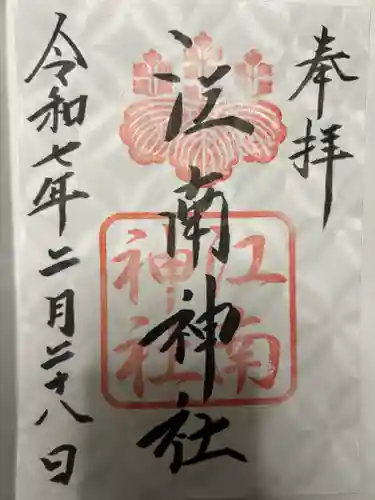 奉拝
江南神社
江南
神社
令和七年二月二十八日